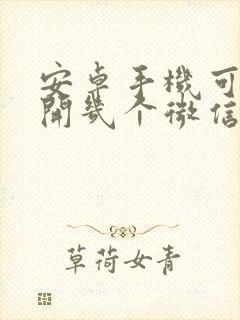 安卓手機可
開幾个微信
草荷女青